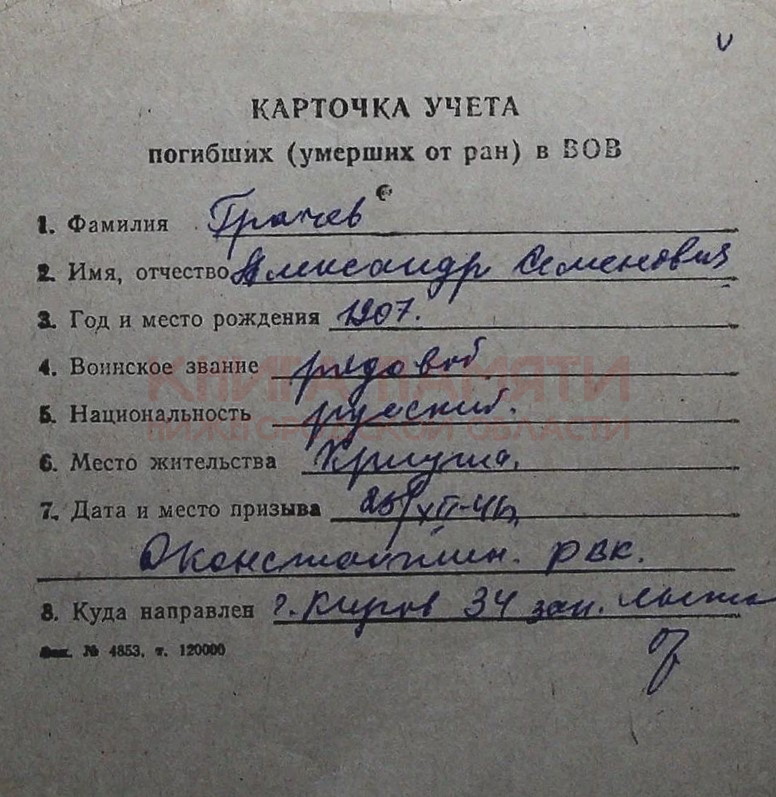 КАРТОЧКА УЧЕТА
погибших (умерших от ран) в ВОВ
1. Фамилия Грачев
2. Имя, отчество Александр Семенович
3. Год и место рождения 1907.
4. Воинское звание рядовой
КНИГА ПАМЯТИ
5. Национальность русский.
НИЖЕГОРОДСКОЙ ОБЛАСТИ
6. Место жительства Криуша.
7. Дата и место призыва XII-41
Д Константин. РВК.
8. Куда направлен г. Киров 34 зап.
Зак. № 4853, т. 120000